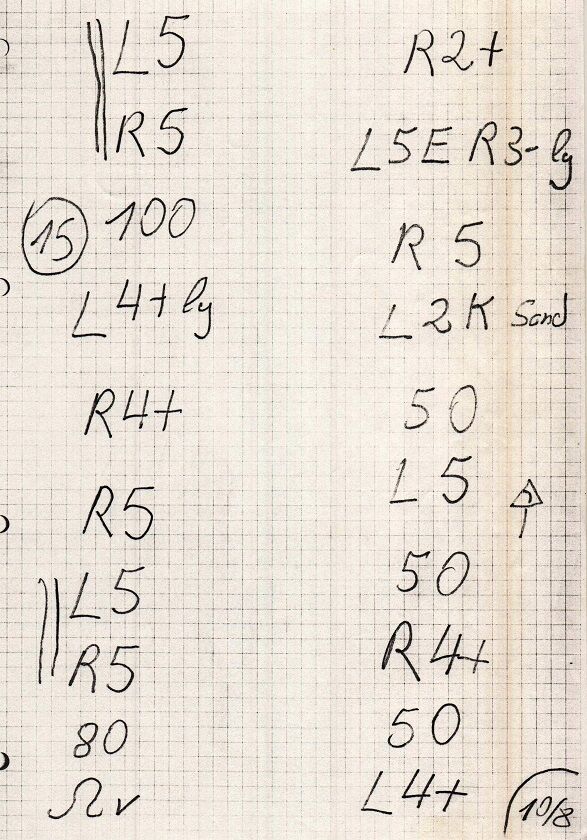 L5
R5
15 100
L4+ ly
R4+
R5
L5
R5
80
Ω v
R2+
L5E R3- ly
R 5
L2K Sand
50
L 5
50
R4+
50
L4+
10/8